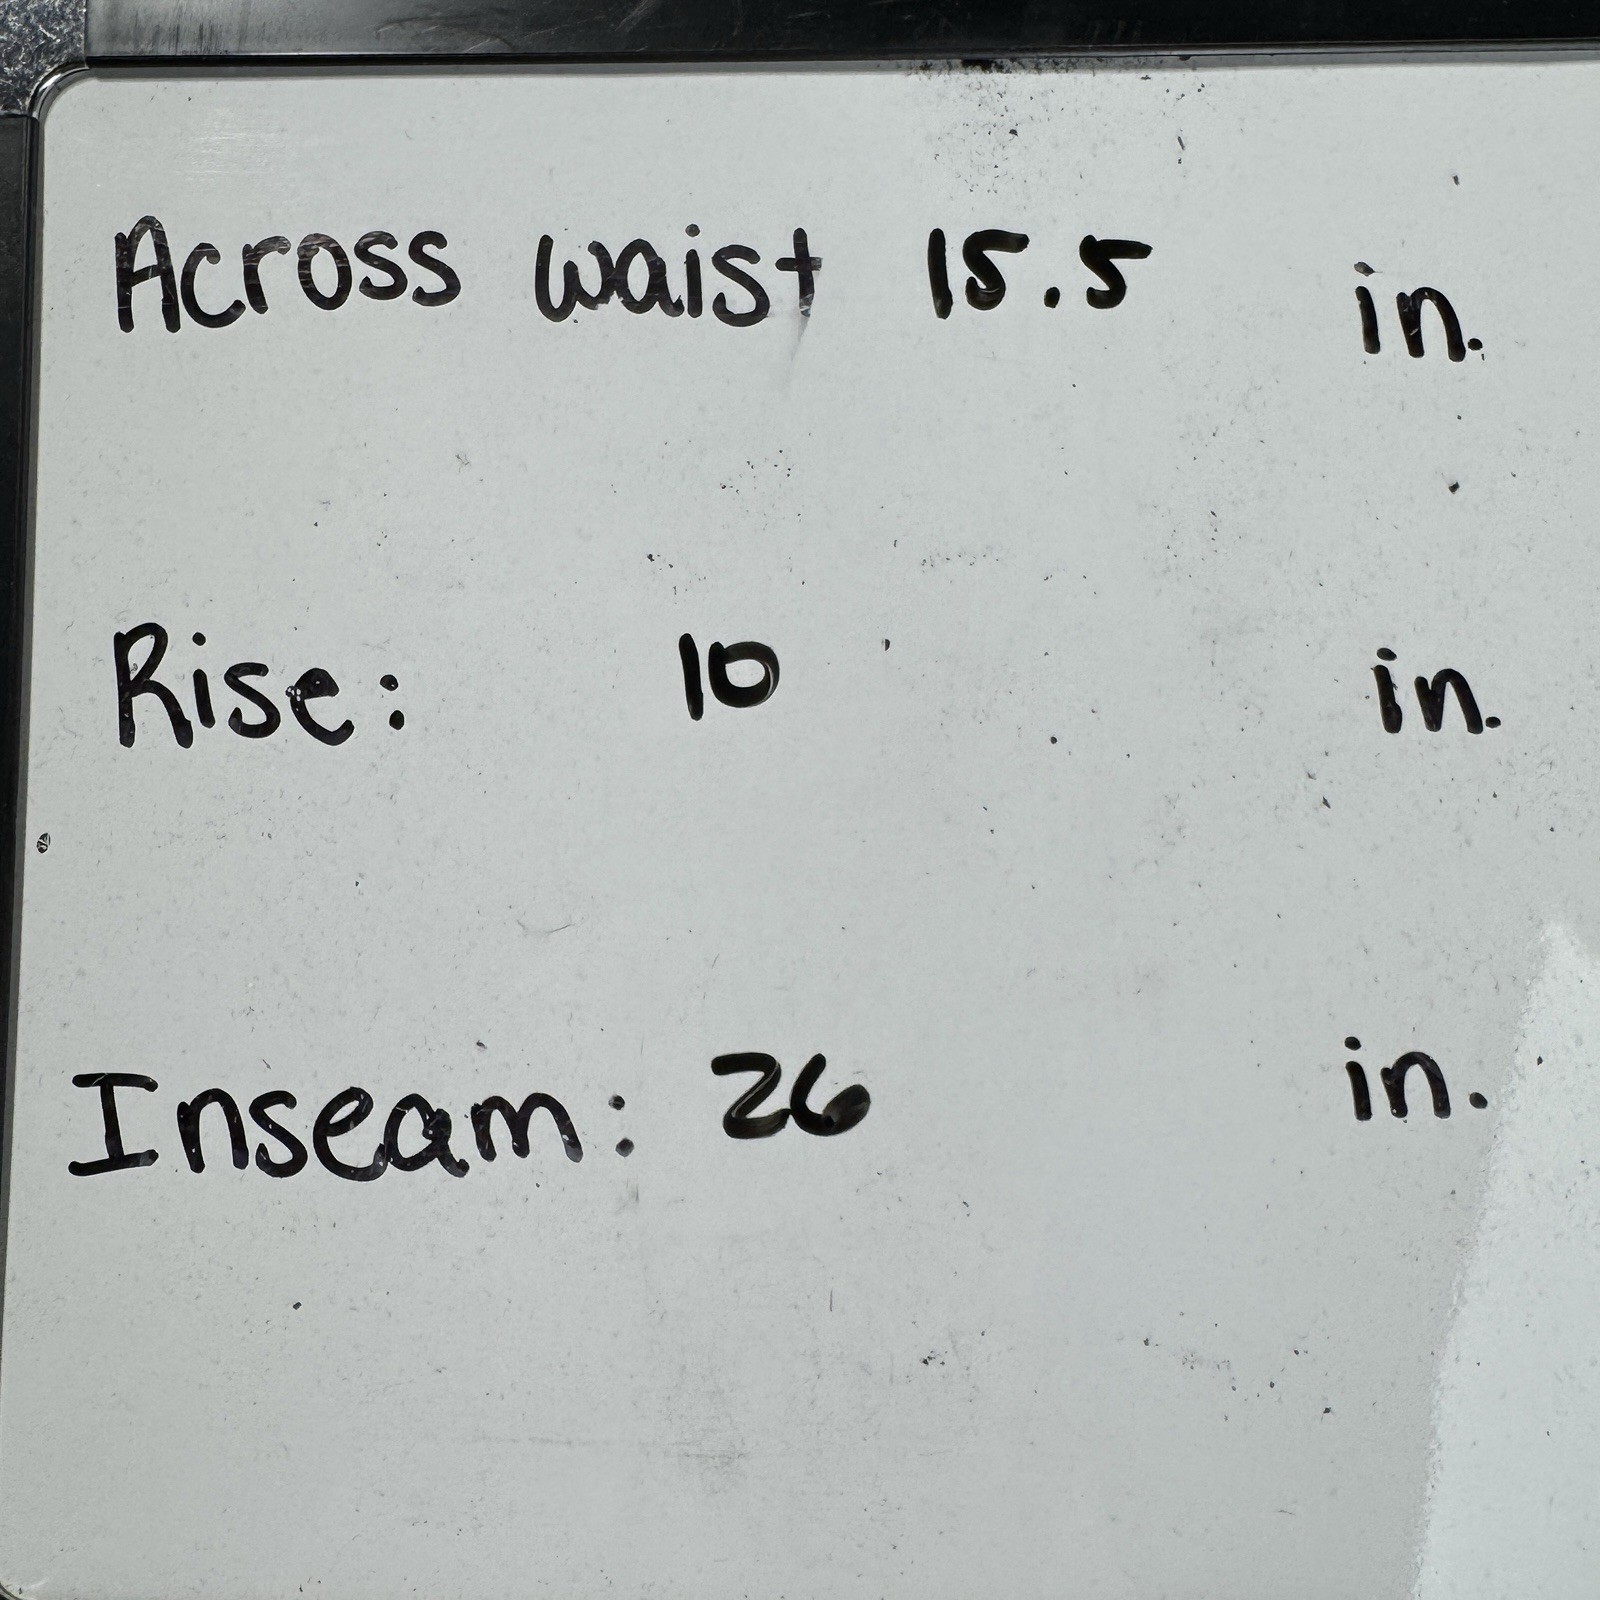 Across waist 15.5 in.
Rise: 10 in.
Inseam: 26 in.